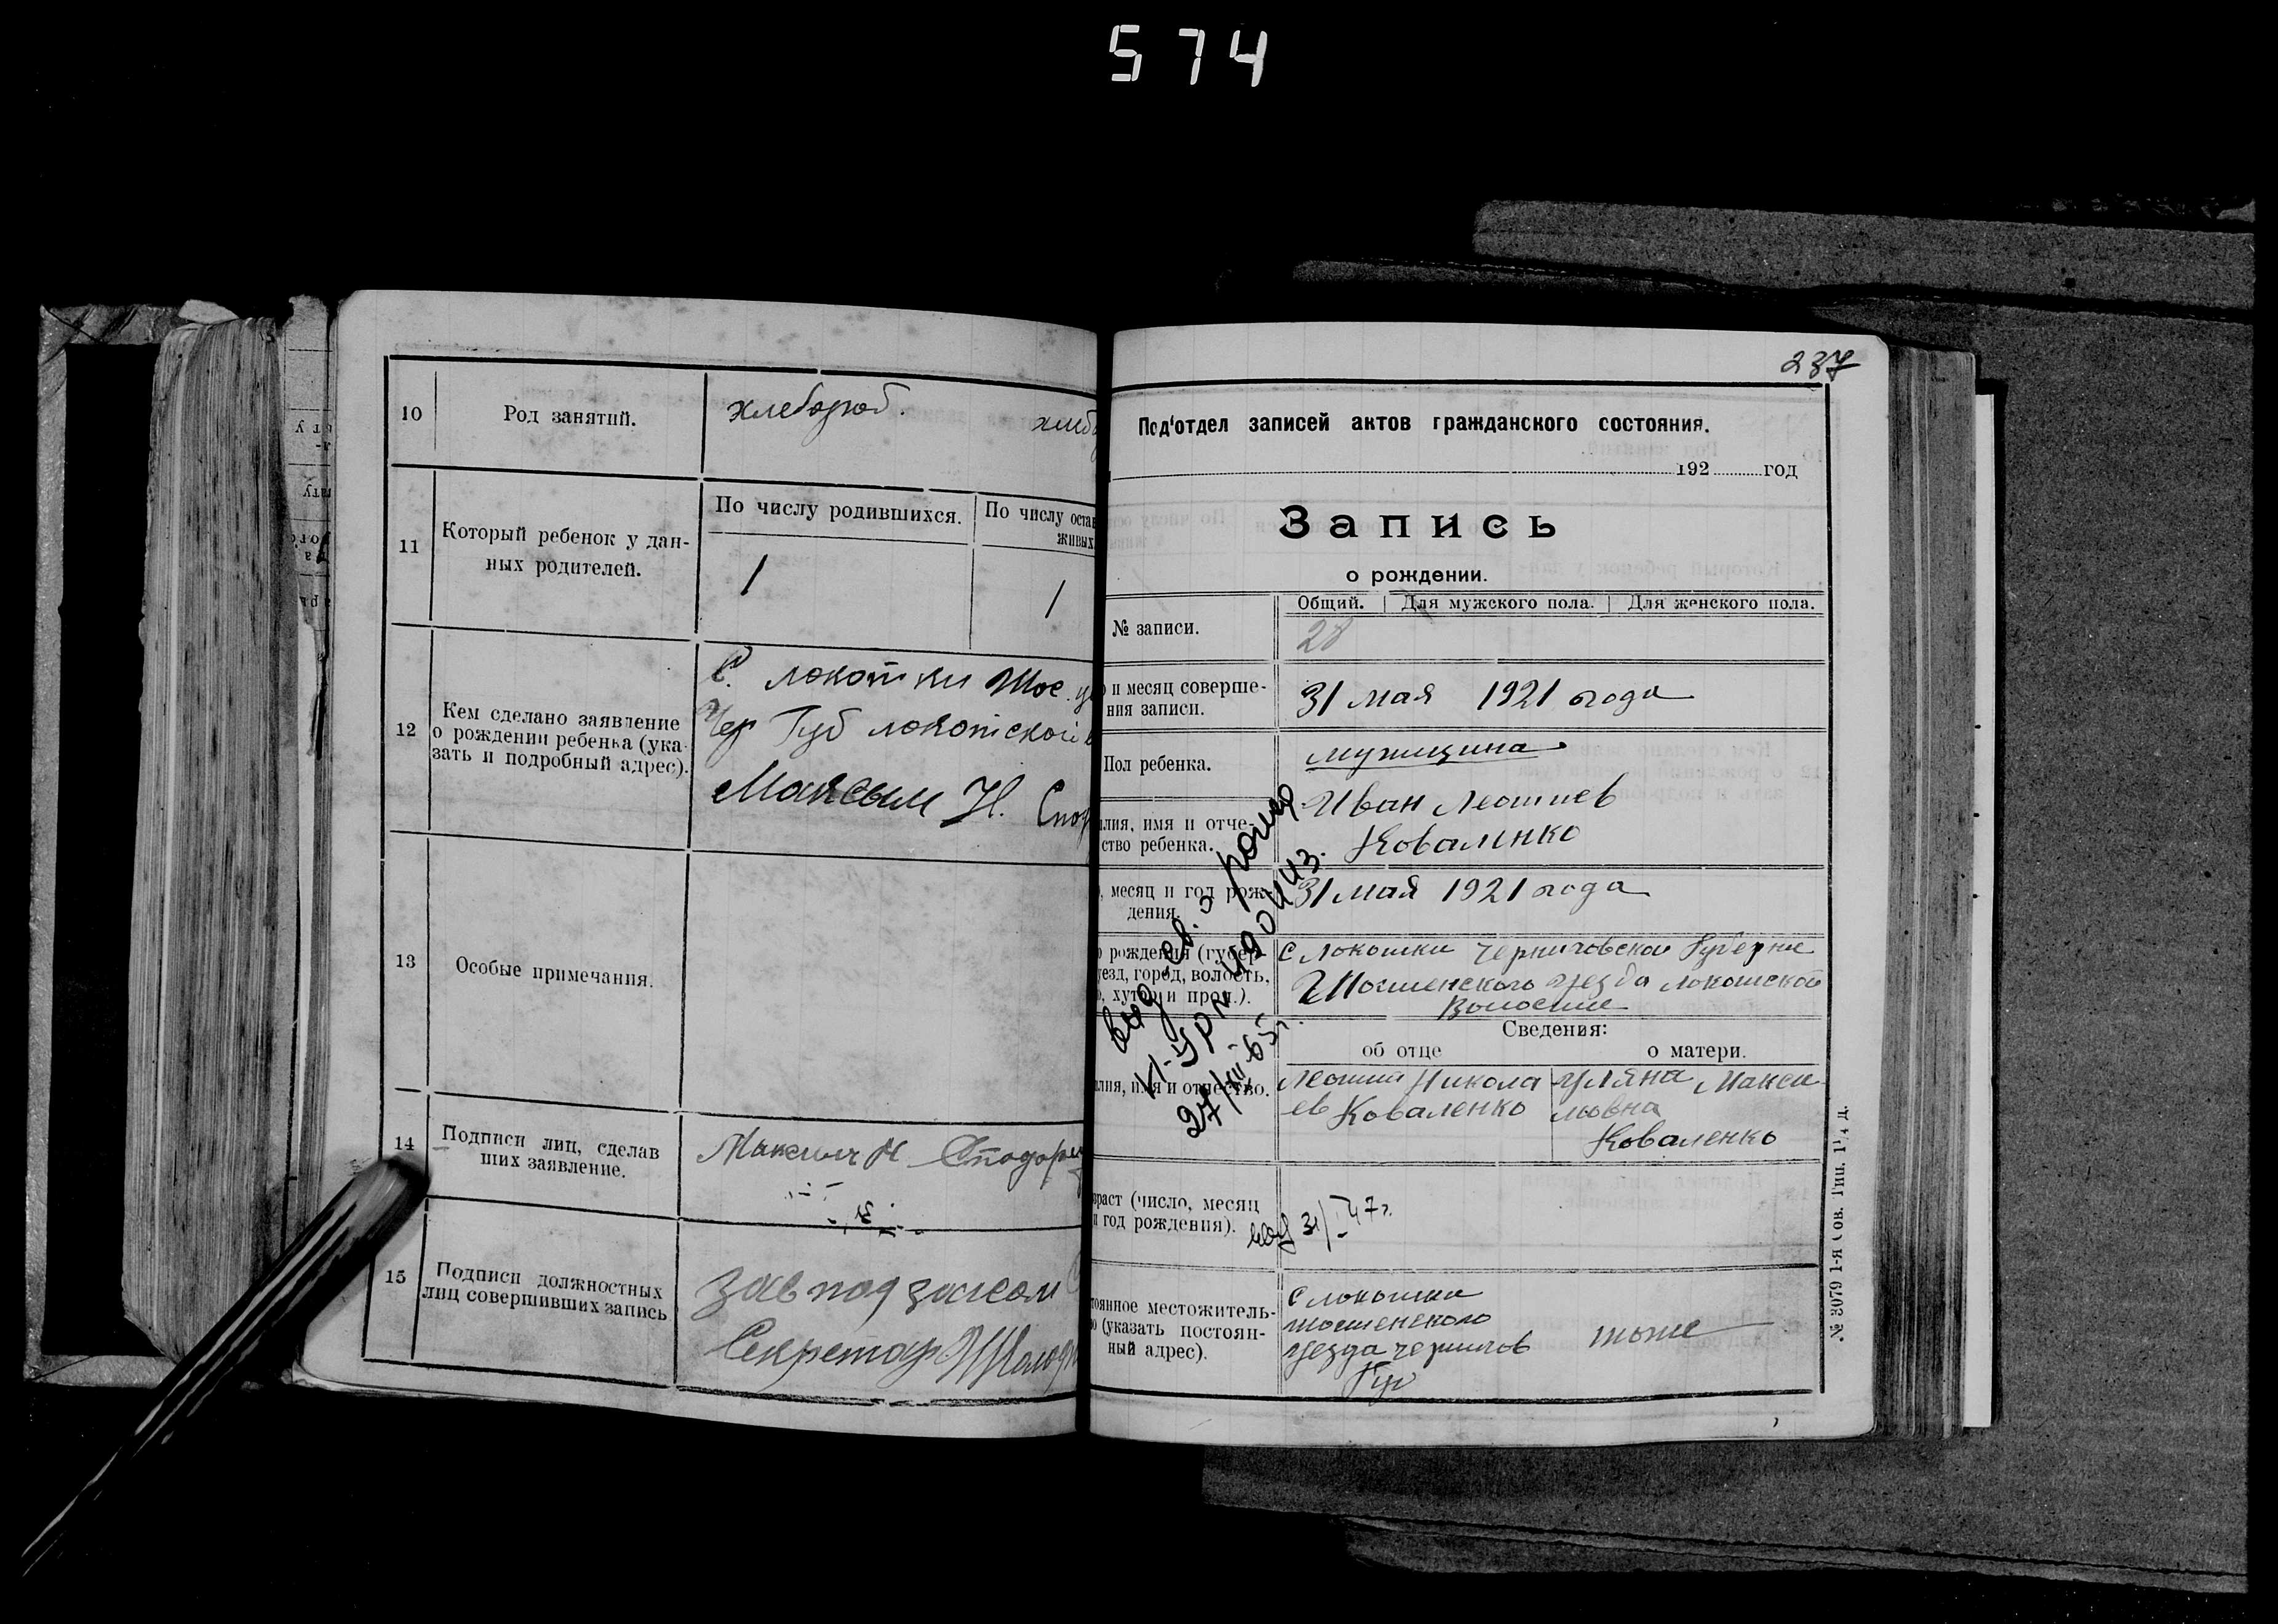 574
10
Род занятий.
хлебороб.
хлеб
11
Который ребенок у дан-
ных родителей.
По числу родившихся.
По числу остав
живых
1
1
12
Кем сделано заявление
о рождении ребенка (ука-
зать и подробный адрес).
С. локотки Шос. у
Чер Губ локотской в
Максым Н.
13
Особые примечания.
14
Подписи лиц, сделав
ших заявление.
Максим Н
15
Подписи должностных
лиц совершивших запись
Зав под загсом
Секретар
237
Под'отдел записей актов гражданского состояния.
192 год
Запись
о рождении.
Общий. Для мужского пола. Для женского пола.
№ записи.
28
и месяц соверше-
ния записи.
31 мая 1921 года
Пол ребенка.
мужщина
лия, имя и отче-
ство ребенка.
Иван Леонтиев
Коваленко
, месяц и год рож-
дения.
31 мая 1921 года
рождения (губер-
уезд, город, волость,
, хутор и проч.).
С Локотки Черниговской Губернии
Шостенского уезда локотской
Волости
Сведения:
об отце
о матери.
лия, имя и отчество.
Леонтий Никола
ев Коваленко
Уляна Макси
мовна
Коваленко
зраст (число, месяц
и год рождения).
31/I 47 г.
тоянное местожитель-
о (указать постоян-
ный адрес).
С локотки
шостенского
уезда чернигов
Губ
тоже
выд. св. о рожд
27/XII-65 г.
№ 3079 1-я Сов. Тип. 1¹/₄ д.